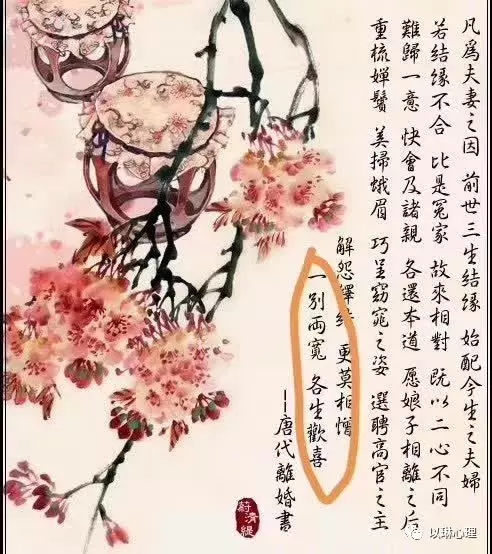 凡爲夫妻之因 前世三生結緣 始配今生之夫婦
若结缘不合 比是冤家 故來相對 既以二心不同
難歸一意 快會及諸親 各還本道 愿娘子相離之后
重梳嬋鬢 美掃蛾眉 巧呈窈窕之姿 選聘高官之主
解怨釋结 更莫相憎
一別兩寬 各生歡喜
——唐代離婚書
蔚清緹
以琳心理